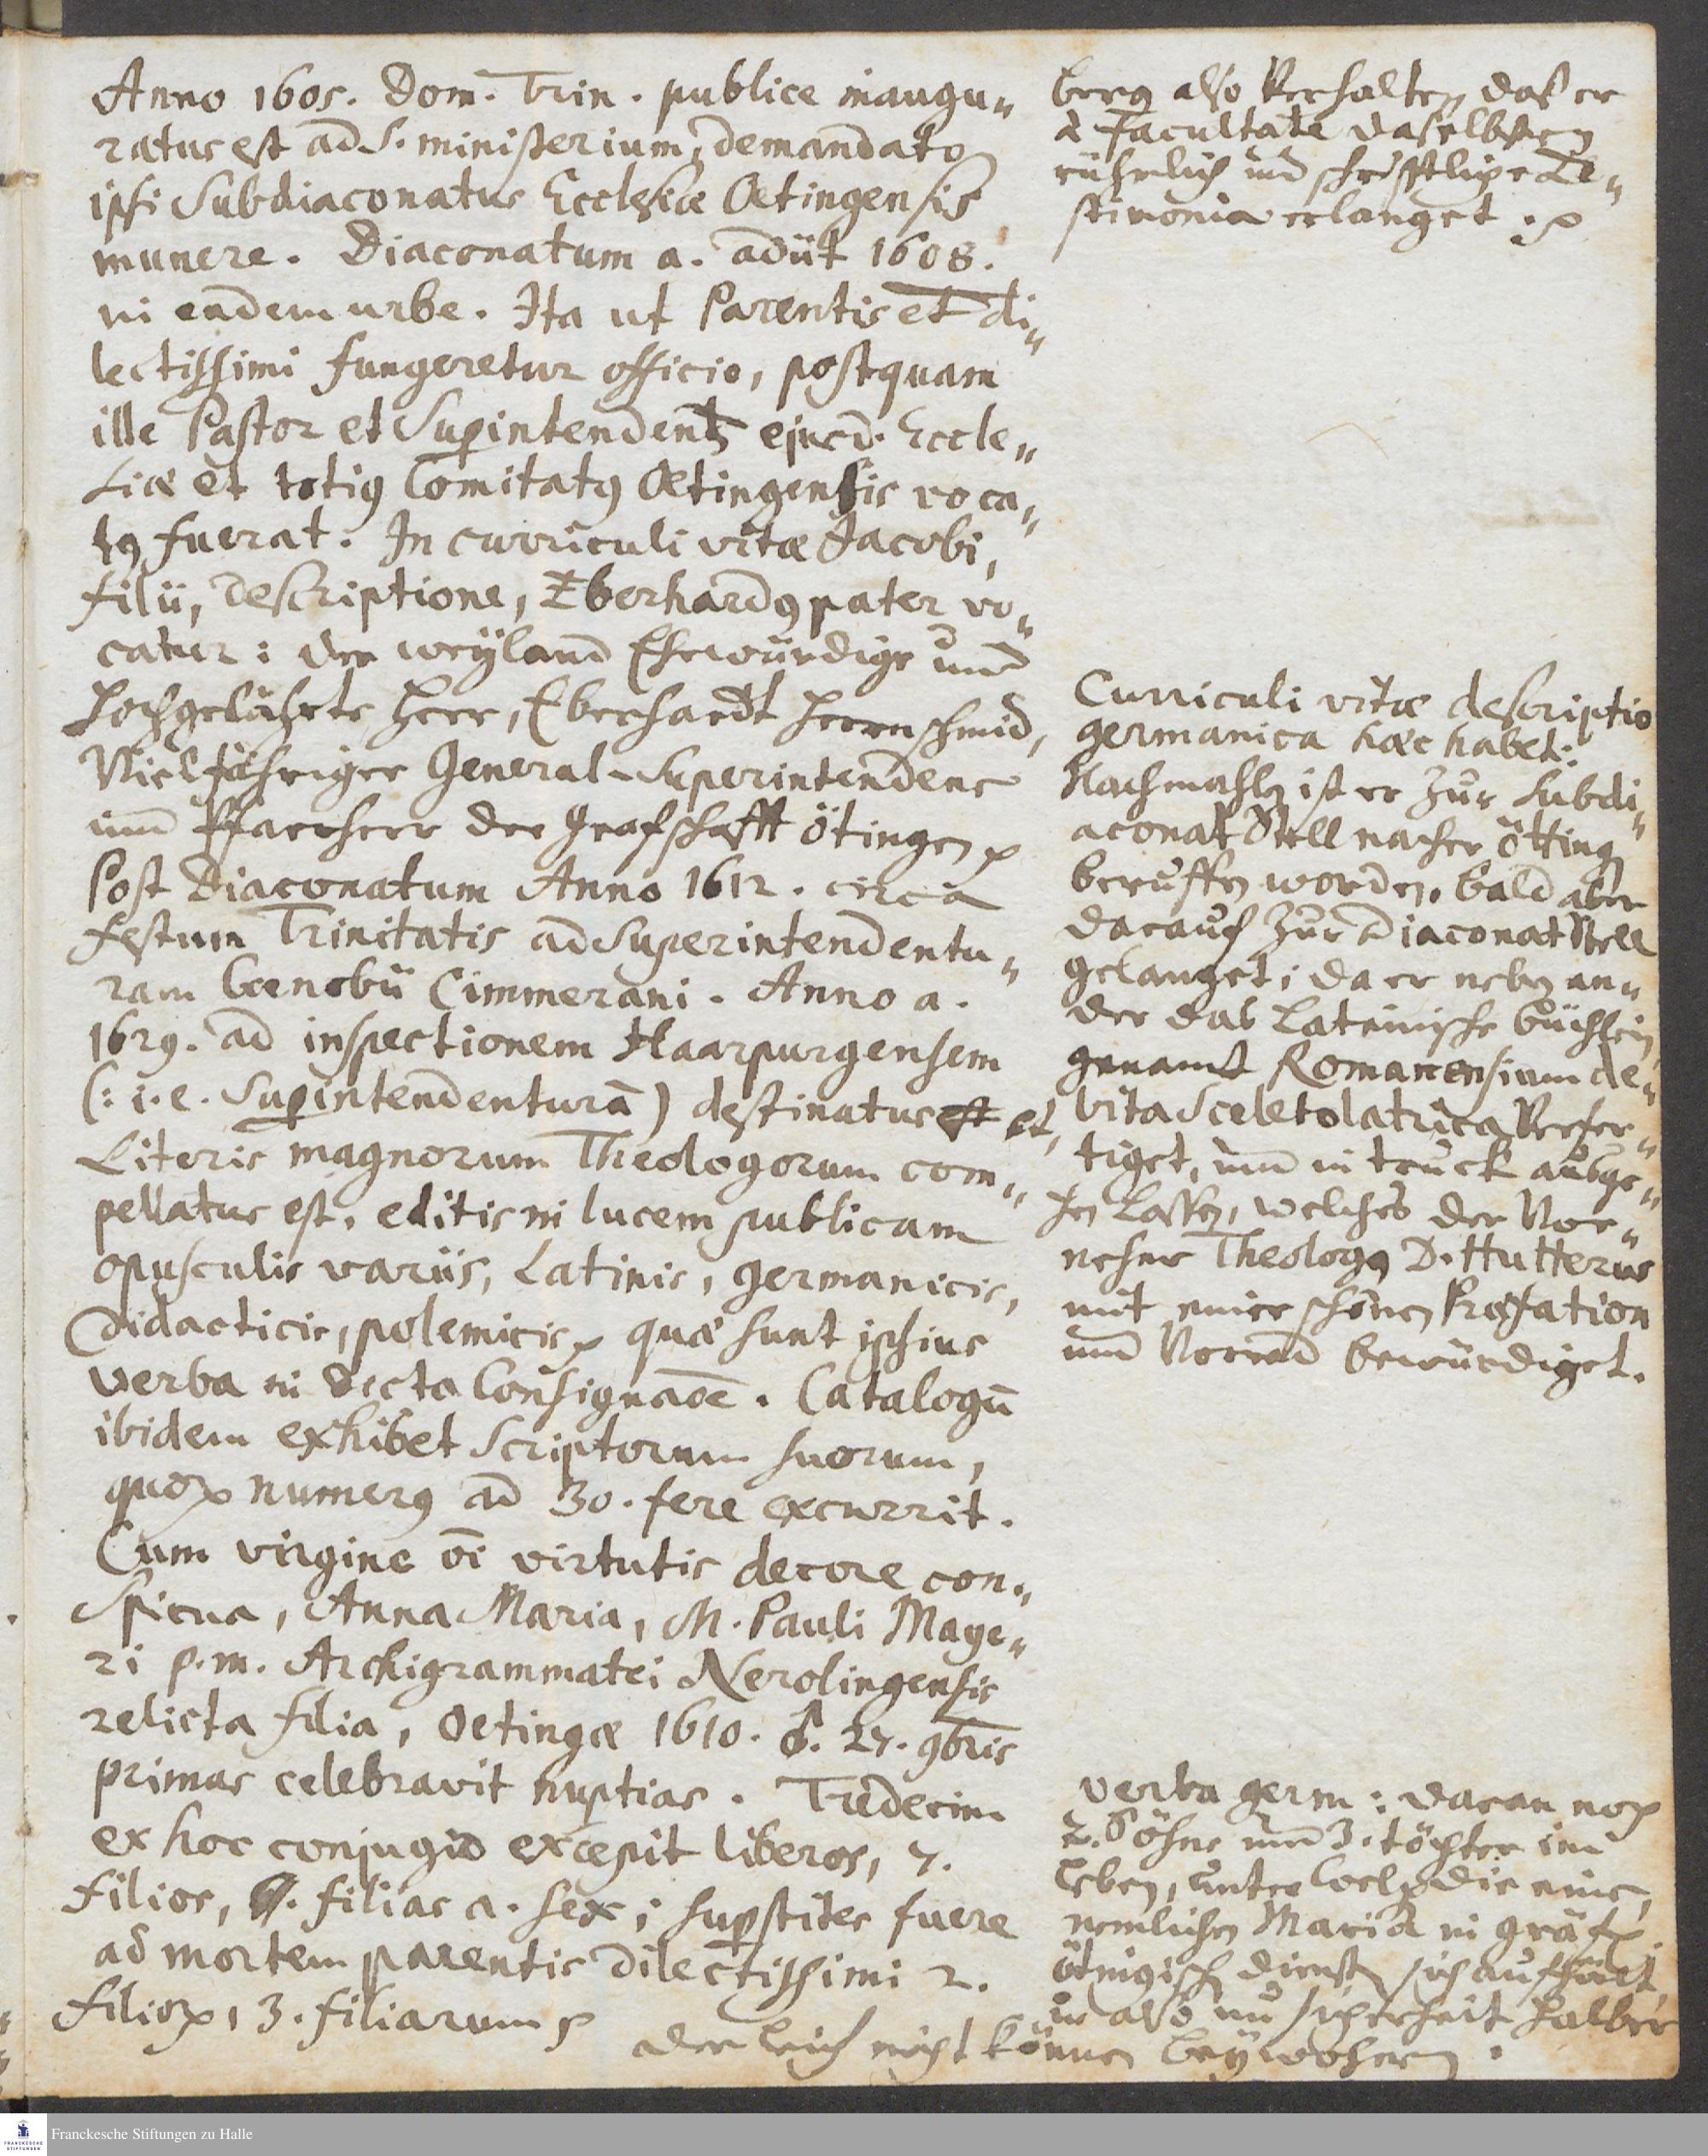 Anno 1605. Dom. Trin. publice inaugu„
ratus est ad S. ministerium, demandato
ipsi Subdiaconatus Ecclesiæ Oetingensis
munere. Diaconatum a. adiit 1608.
in eadem urbe. Ita ut Parentis et di„
lectissimi fungeretur officio, postquam
ille Pastor et Supintendens ejusd. Eccle„
siæ et totiꝰ Comitatꝰ Oetingensis voca„
tꝰ fuerat. In curriculi vitæ Jacobi,
filii, descriptione, Eberhardꝰ pater vo„
catur: der weÿland Ehrwürdige und
Hochgelährte Herr, Eberhardt Herrnschmid,
Vieljähriger General-Superintendens
und Pfarrherr der Grafschafft Ötingen ꝛc
Post Diaconatum Anno 1612. circa
festum Trinitatis ad Superintendentu„
ram Cœnobii Cimmerani. Anno a.
1629. ad inspectionem Haarpurgensem
(: i. e. Supintendenturā) destinatus est et,
Literis magnorum Theologorum com„
pellatus est, editis in lucem publicam
opusculis variis, Latinis, germanicis,
didacticis, polemicis ꝛc quæ sunt ipsius
verba in dicta Consignaōe. Catalogū
ibidem exhibet Scriptorum suorum,
quoꝝ numerꝰ ad 30. fere excurrit.
Cum virgine oī virtutis decore con„
spicua, Anna Maria, M. Pauli Maye„
ri p. m. Archigrammatei Nerolingensis
relicta filia, Oetingæ 1610. d. 27. 9bris
primas celebravit nuptias. Tredecim
ex hoc conjugio excepit liberos, 7.
filios, filias a. sex; supstites fuere
ad mortem parentis dilectissimi 2.
filioꝝ, 3. filiarum ꝛc
berg also verhalten, daß er
à Facultate daselbsten
rühmlich und schrifftliche Te„
stimonia erlanget. ꝛc
Curriculi vitæ descriptio
germanica hæc habet:
Nachmahln ist er zur Subdi„
aconat Stell nacherÖtting
beruffen worden, bald aber
darauf zur Diaconat Stell
gelanget; da er neben an„
der das Lateinische büchlein
genamt Romanensium de„
vita Sceletolatrica verfer„
tiget, und in truck ausge„
hen lassen, welches der Vor„
nehme Theologꝰ D. Hutterus
mit einer schönen Præfation
und Vorred bewürdiget.
Verba germ: daran noch
2. Söhne und 3. töchter im
Leben, unter welch die eine,
nemlichen Maria in gräfl.
ötingisch diensten sich auffhält,
u also unsicherheit halber
der leich nicht können beÿwohnen.
Franckesche Stiftungen zu Halle